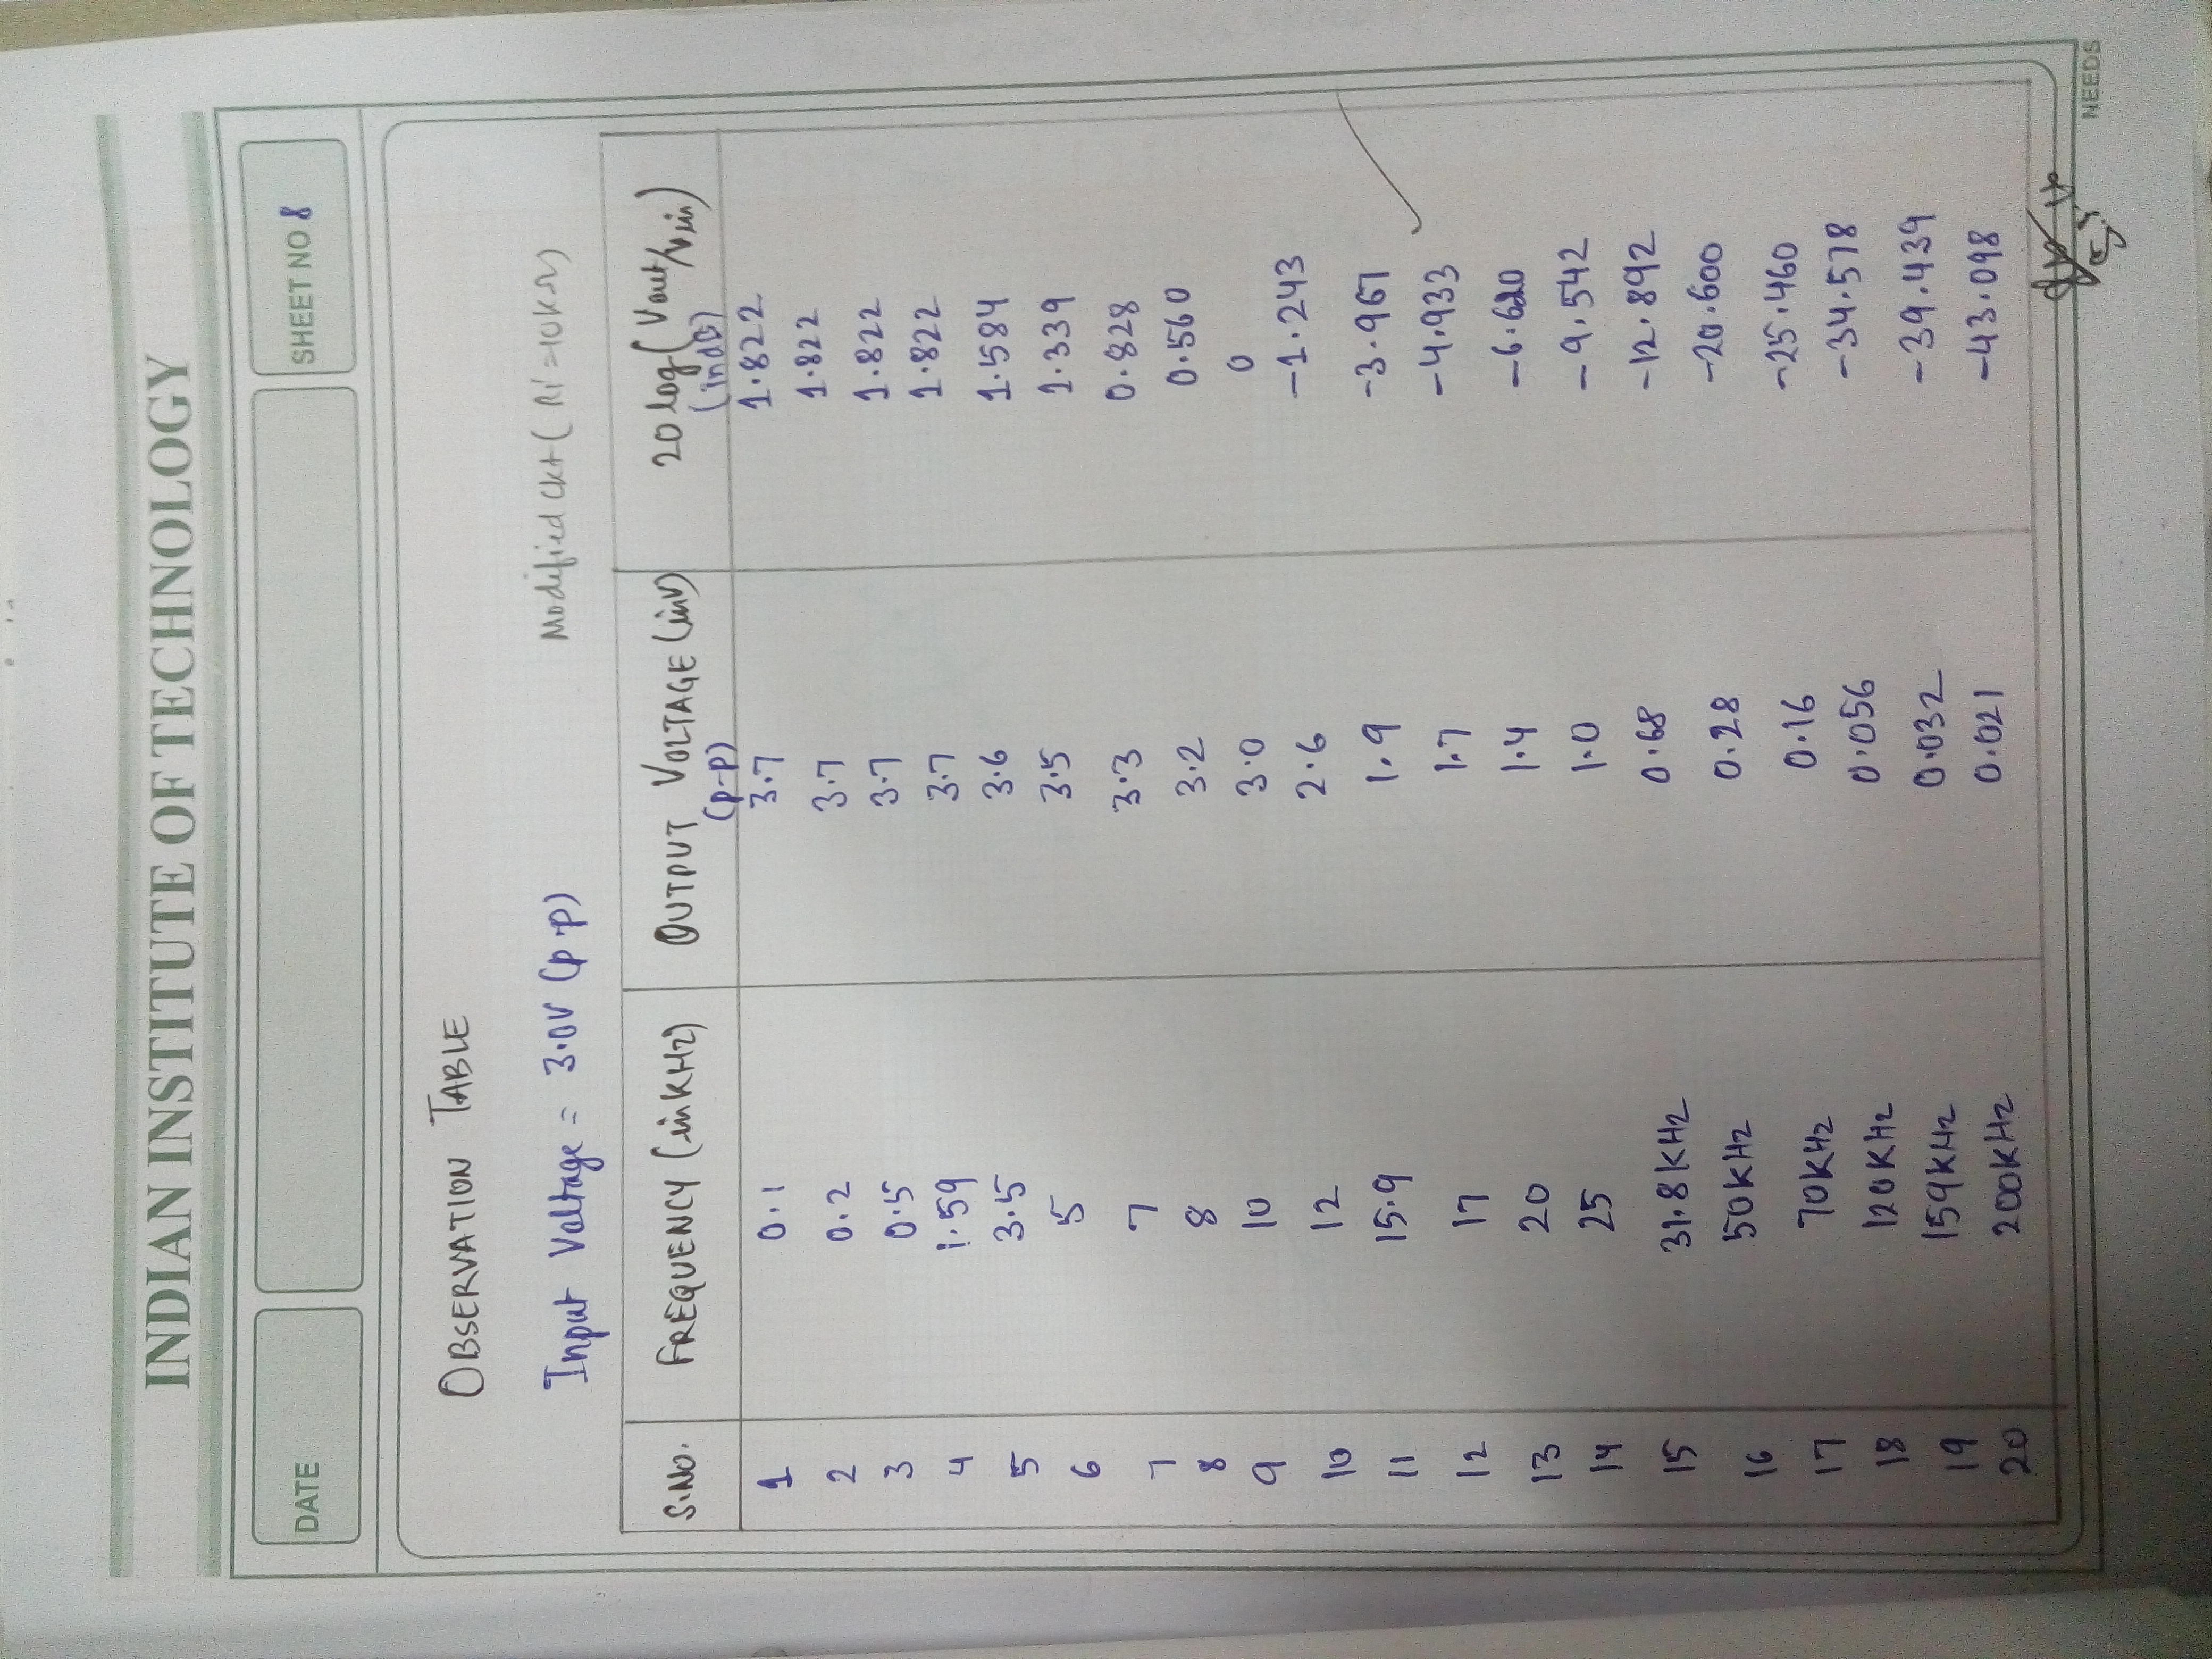 INDIAN INSTITUTE OF TECHNOLOGY
DATE
SHEET NO 8
OBSERVATION TABLE
Input Voltage = 3.0V (p-p)
Modified Ckt ( Ri' = 10KΩ)
S.NO. FREQUENCY (in KHz) OUTPUT VOLTAGE (inV) 20 log (Vout/Vin)
(P-P) (in dB)
1 0.1 3.7 1.822
2 0.2 3.7 1.822
3 0.5 3.7 1.822
4 1.59 3.7 1.822
5 3.5 3.6 1.584
6 5 3.5 1.339
7 7 3.3 0.828
8 8 3.2 0.560
9 10 3.0 0
10 12 2.6 -1.243
11 15.9 1.9 -3.967
12 17 1.7 -4.933
13 20 1.4 -6.620
14 25 1.0 -9.542
15 31.8 KHz 0.68 -12.892
16 50KHz 0.28 -20.600
17 70KHz 0.16 -25.460
18 120KHz 0.056 -34.578
19 159KHz 0.032 -39.439
20 200KHz 0.021 -43.098
NEEDS